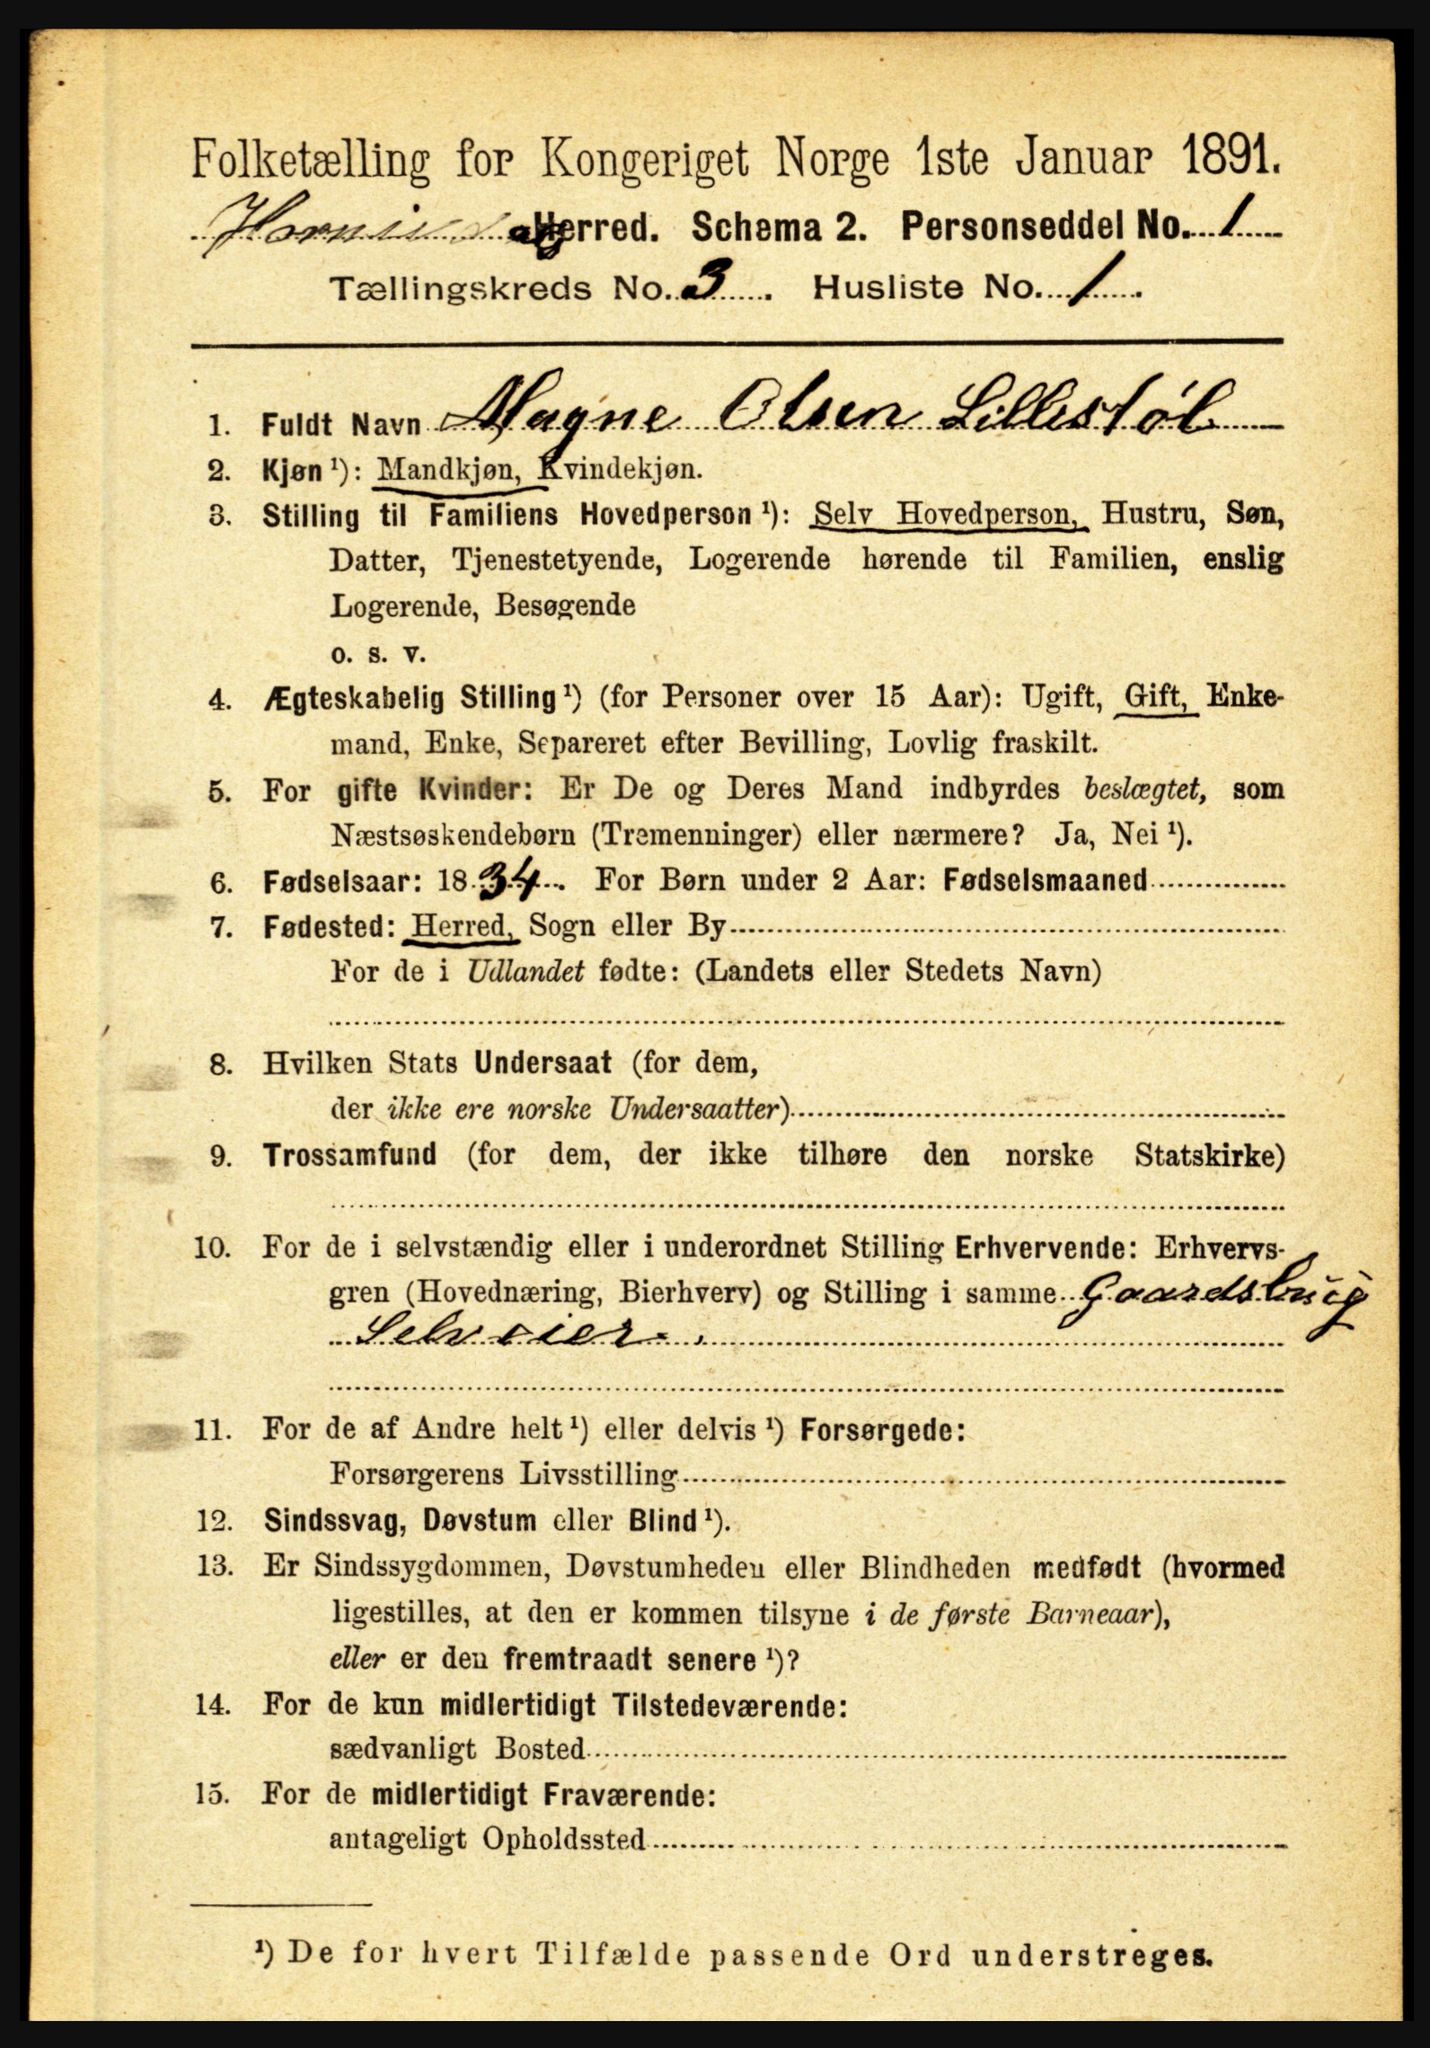 Folketælling for Kongeriget Norge 1ste Januar 1891.
Hornindal Herred. Schema 2. Personseddel No. 1
Tællingskreds No. 3. Husliste No. 1.
1. Fuldt Navn Magne Olsen Lillestøl
2. Kjøn ¹): Mandkjøn, Kvindekjøn.
3. Stilling til Familiens Hovedperson ¹): Selv Hovedperson, Hustru, Søn,
Datter, Tjenestetyende, Logerende hørende til Familien, enslig
Logerende, Besøgende
o. s. v.
4. Ægteskabelig Stilling ¹) (for Personer over 15 Aar): Ugift, Gift, Enke-
mand, Enke, Separeret efter Bevilling, Lovlig fraskilt.
5. For gifte Kvinder: Er De og Deres Mand indbyrdes beslægtet, som
Næstsøskendebørn (Tremenninger) eller nærmere? Ja, Nei ¹).
6. Fødselsaar: 1834. For Børn under 2 Aar: Fødselsmaaned
7. Fødested: Herred, Sogn eller By
For de i Udlandet fødte: (Landets eller Stedets Navn)
8. Hvilken Stats Undersaat (for dem,
der ikke ere norske Undersaatter)
9. Trossamfund (for dem, der ikke tilhøre den norske Statskirke)
10. For de i selvstændig eller i underordnet Stilling Erhvervende: Erhvervs-
gren (Hovednæring, Bierhverv) og Stilling i samme Gaardsbrug
Selveier.
11. For de af Andre helt ¹) eller delvis ¹) Forsørgede:
Forsørgerens Livsstilling
12. Sindssvag, Døvstum eller Blind ¹).
13. Er Sindssygdommen, Døvstumheden eller Blindheden medfødt (hvormed
ligestilles, at den er kommen tilsyne i de første Barneaar),
eller er den fremtraadt senere ¹)?
14. For de kun midlertidigt Tilstedeværende:
sædvanligt Bosted
15. For de midlertidigt Fraværende:
antageligt Opholdssted
¹) De for hvert Tilfælde passende Ord understreges.